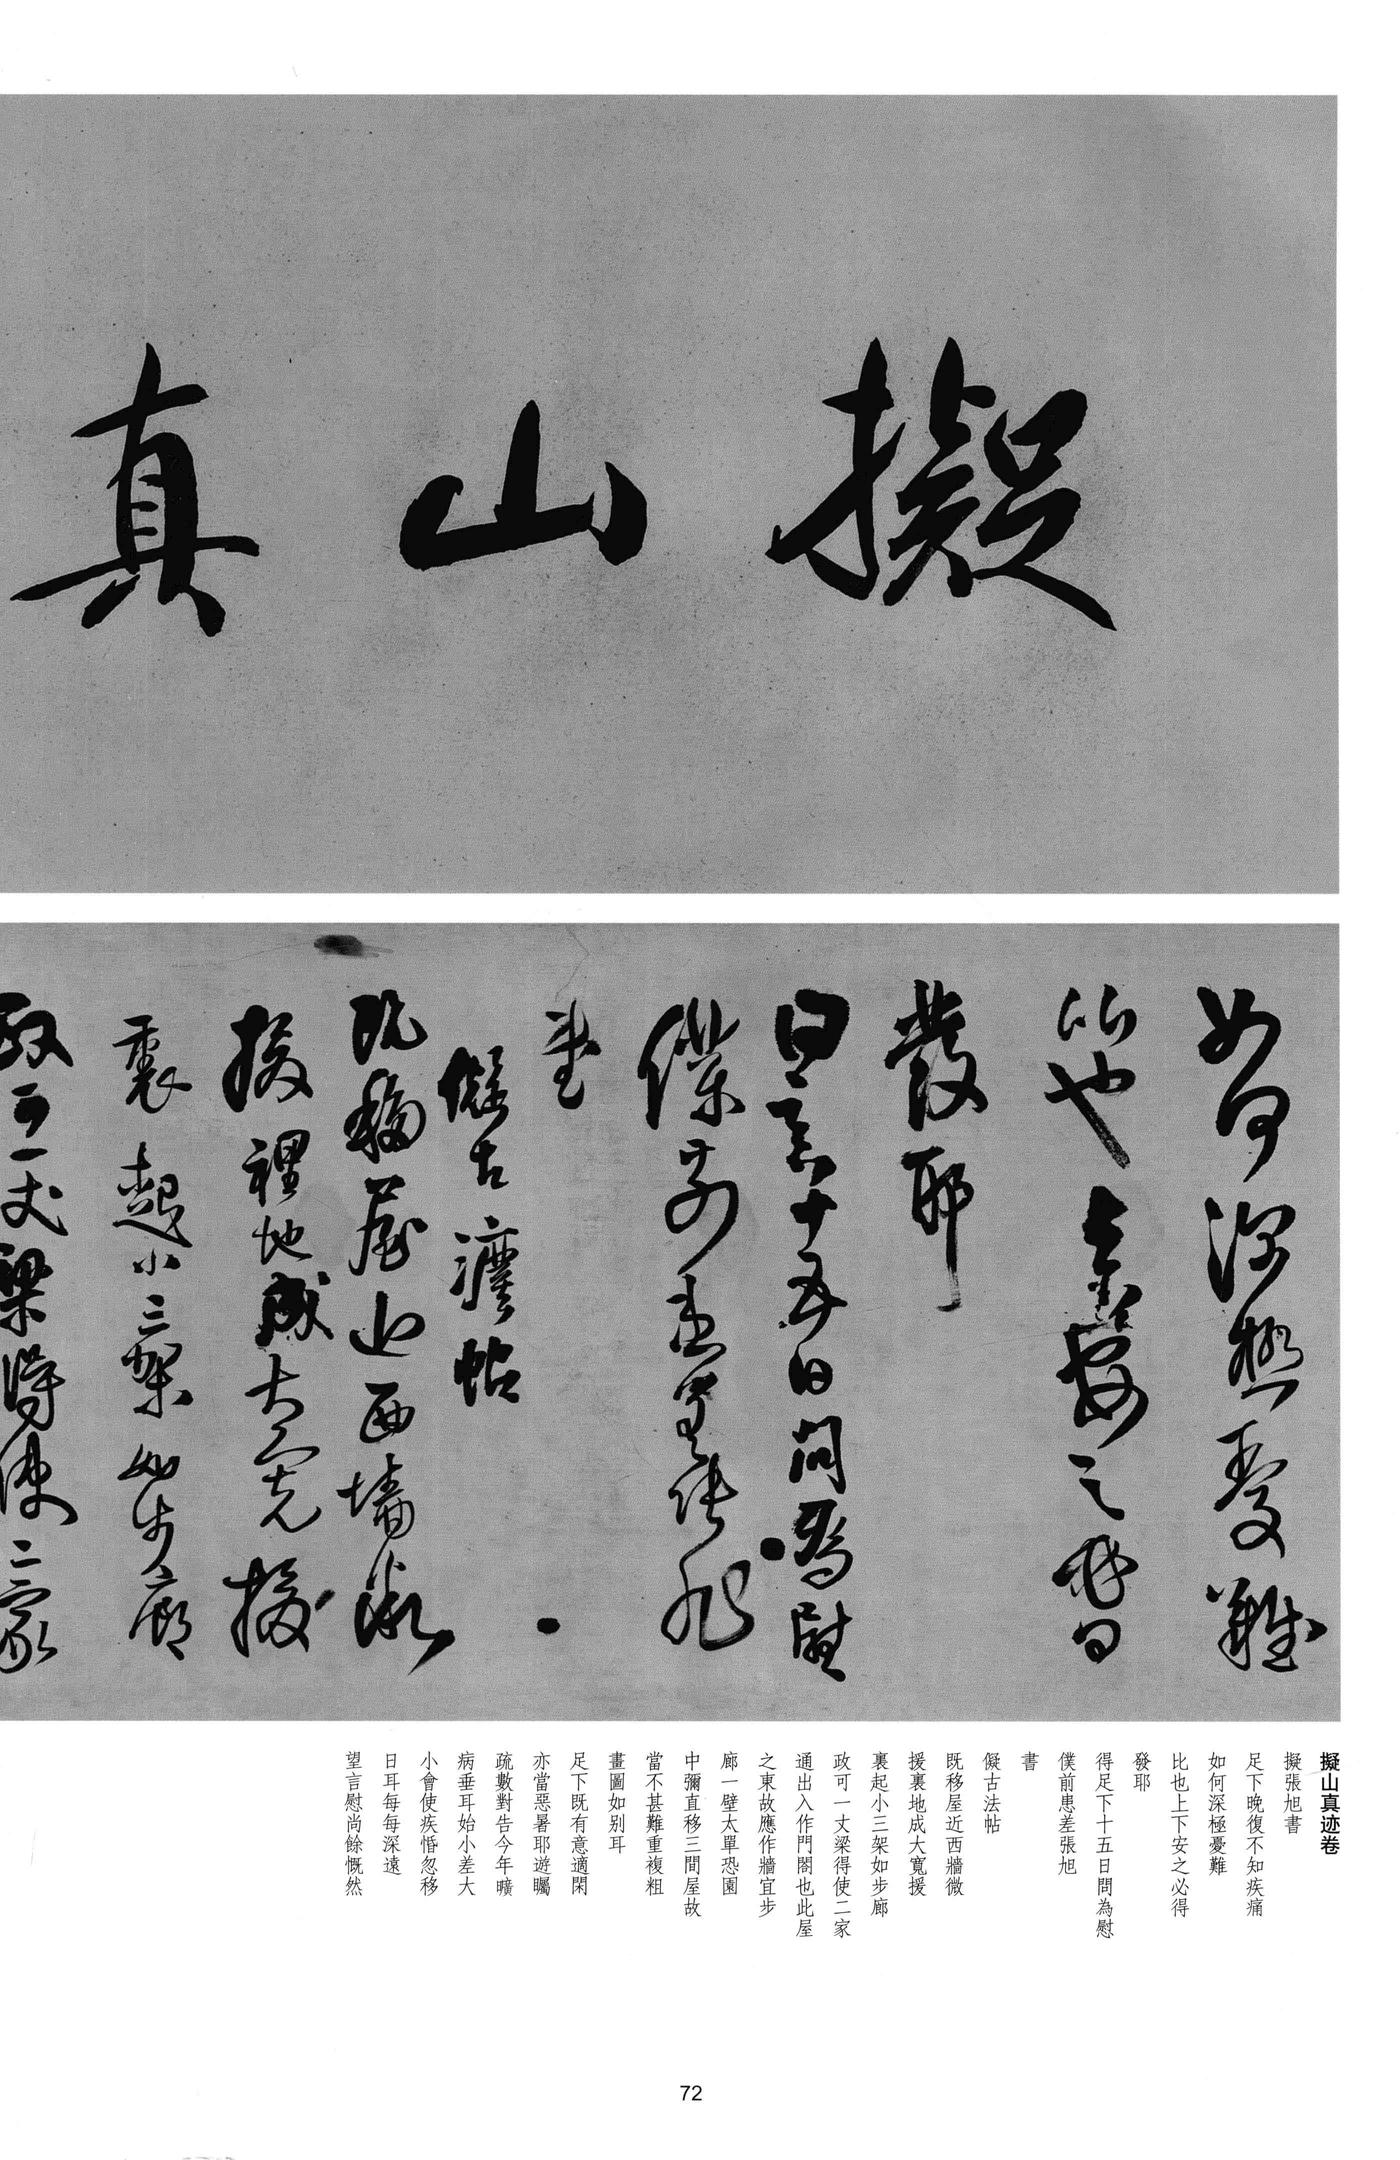 擬山真
如何深極憂難
比也上下安之必得
發耶
日云十五日問為慰
僕前患差張旭
書
儗古法帖
既移屋近西墻微
援裡地成大寬援
裏起小三架如步廊
政可一丈梁得使二家
擬山真迹卷
擬張旭書
足下晚復不知疾痛
如何深極憂難
比也上下安之必得
發耶
得足下十五日問為慰
僕前患差張旭
書
儗古法帖
既移屋近西牆微
援裏地成大寬援
裏起小三架如步廊
政可一丈梁得使二家
通出入作門閤也此屋
之東故應作牆宜步
廊一壁太單恐園
中彌直移三間屋故
當不甚難重複粗
畫圖如别耳
足下既有意適閑
亦當惡暑耶遊矚
疏數對告今年曠
病垂耳始小差大
小會使疾惛忽移
日耳每每深遠
望言慰尚餘慨然
72